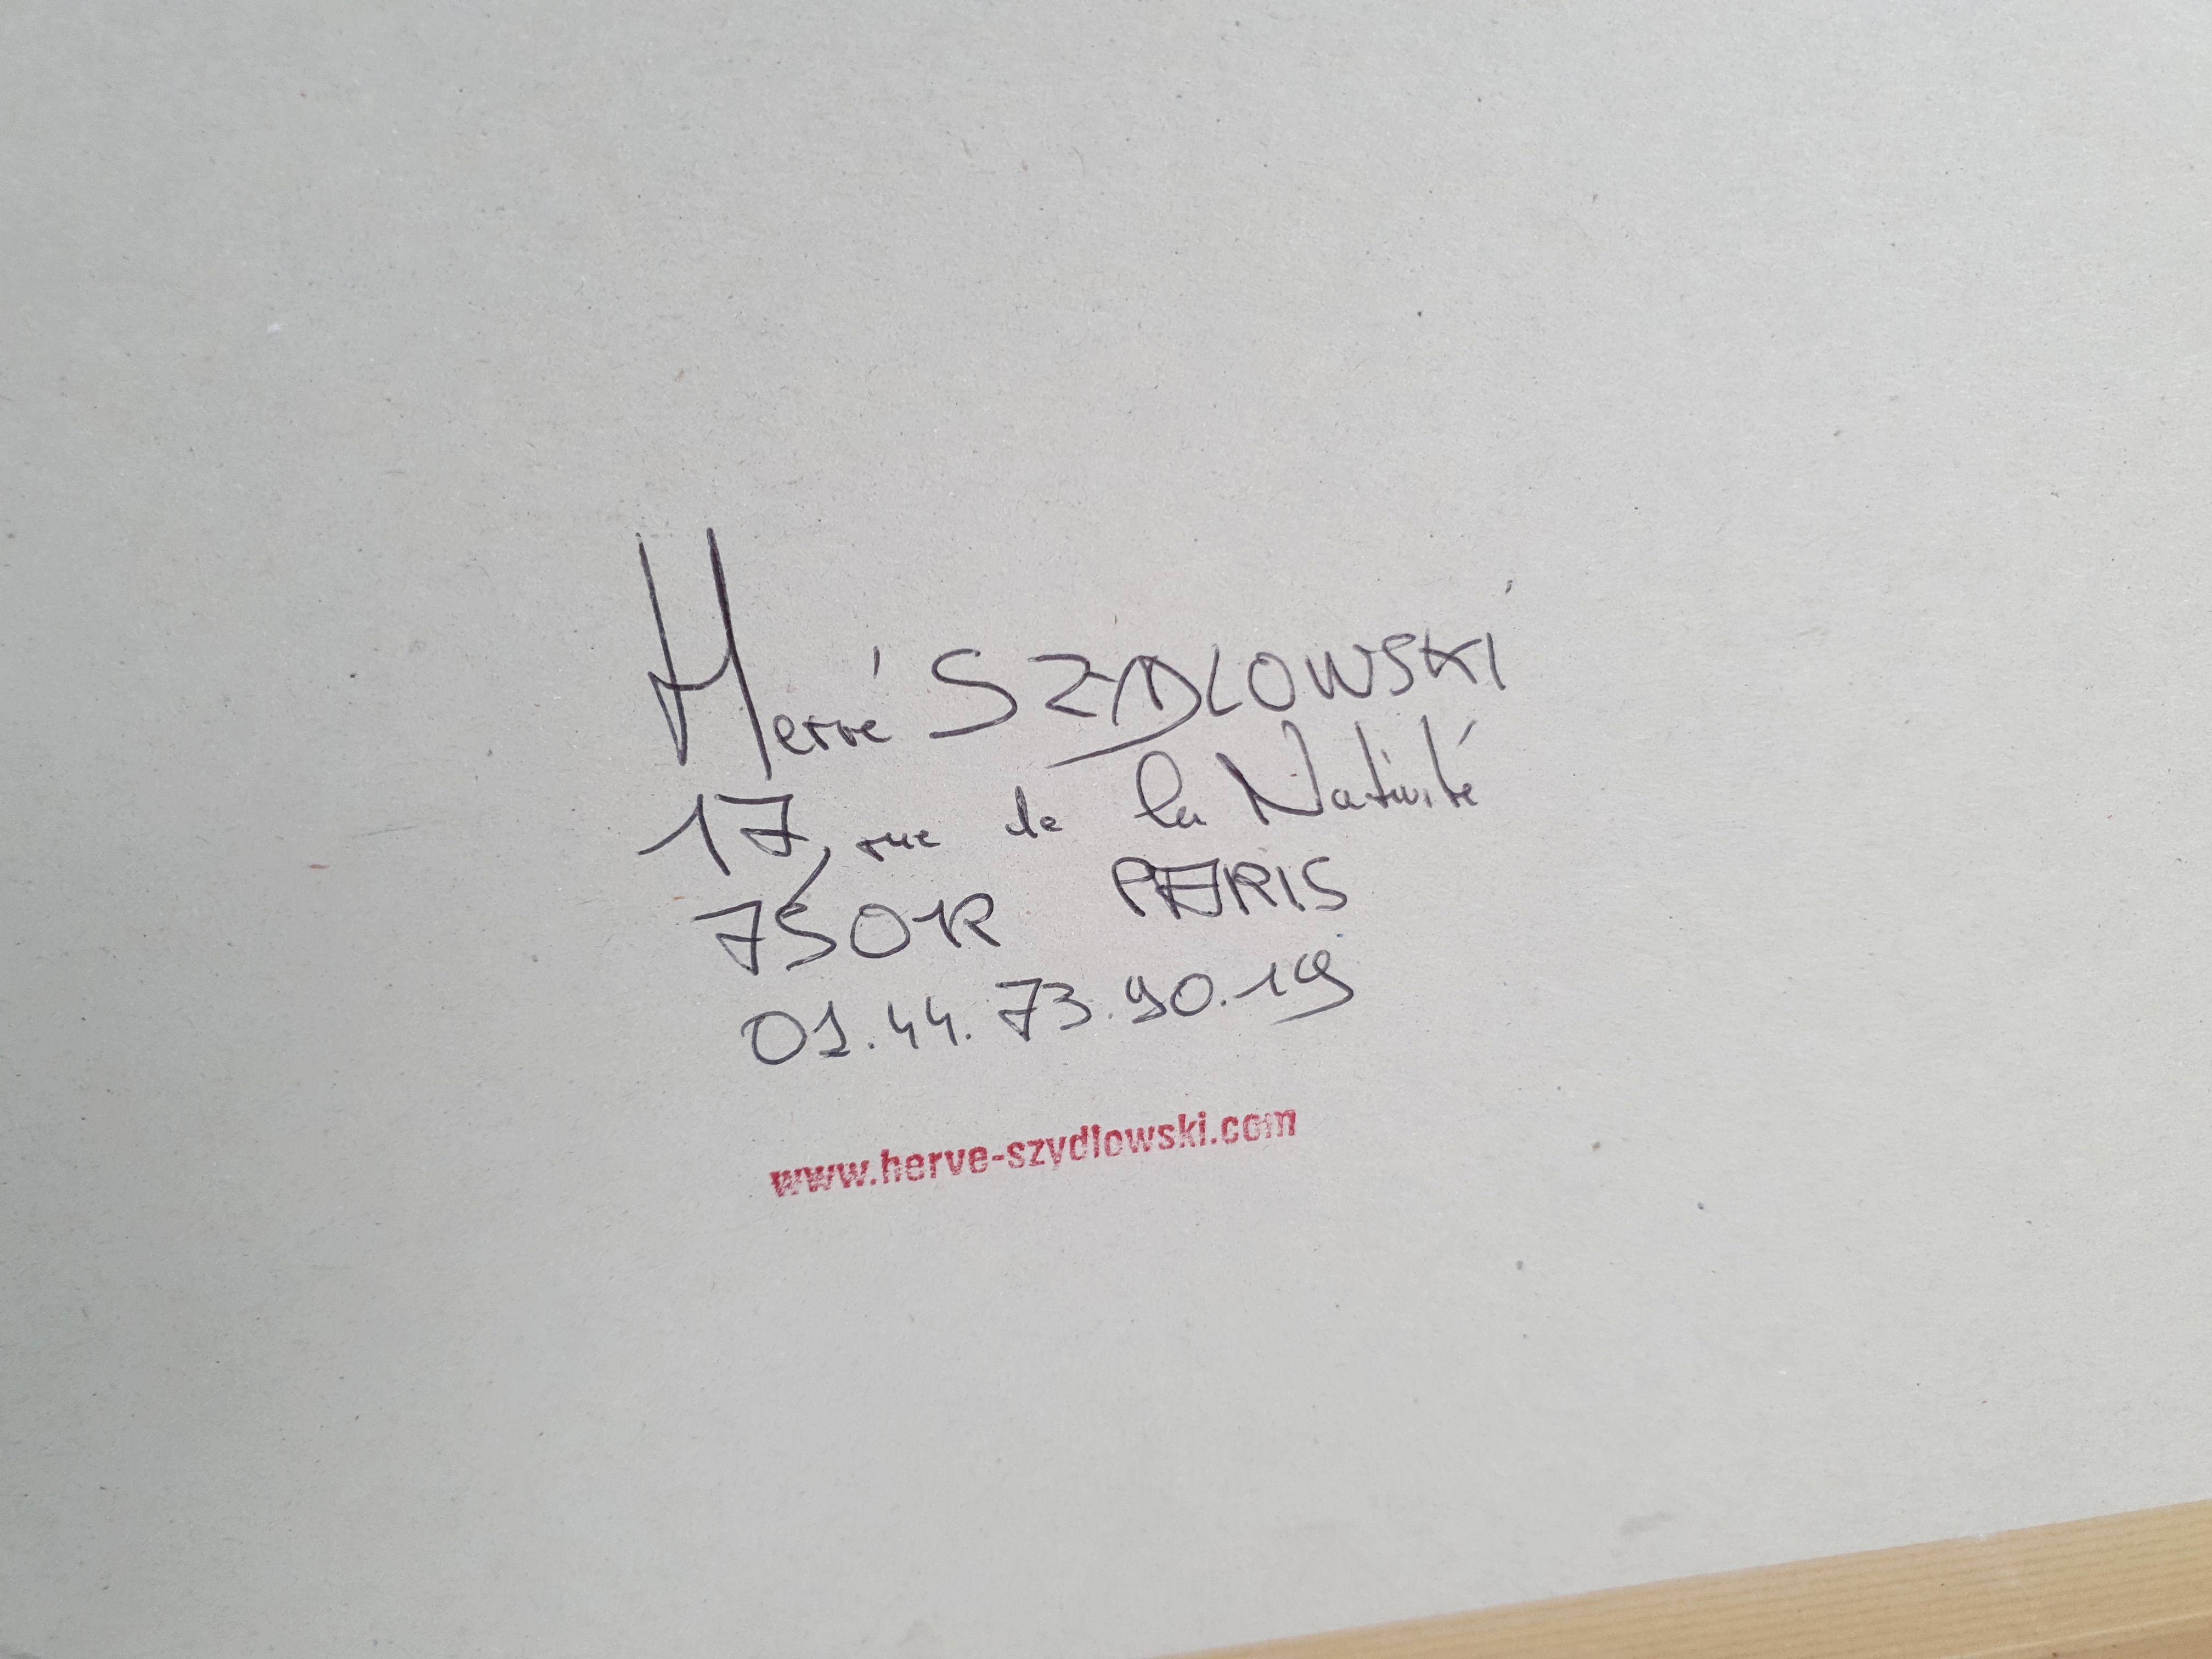 Hervé SZYDLOWSKI
17, rue de la Nativité
75012 PARIS
01.44.73.90.19
www.herve-szydlowski.com